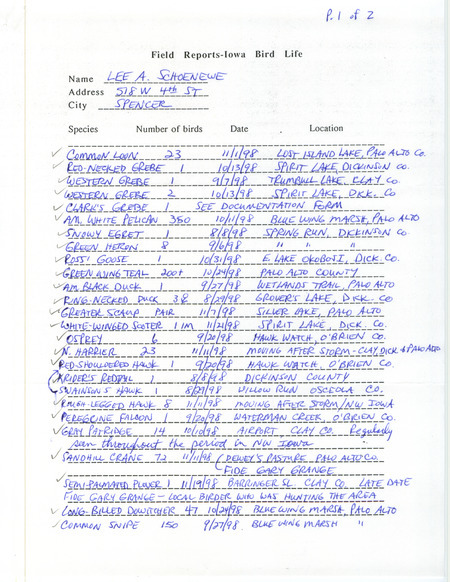 P. 1 of 2
Field Reports-Iowa Bird Life
Name LEE A. SCHOENEWE
Address 518 W 4th ST
City SPENCER
Species Number of birds Date Location
COMMON LOON 23 11/1/98 LOST ISLAND LAKE, PALO ALTO CO.
RED-NECKED GREBE 1 10/13/98 SPIRIT LAKE, DICKINSON CO.
WESTERN GREBE 1 9/7/98 TRUMBULL LAKE, CLAY CO.
WESTERN GREBE 2 10/13/98 SPIRIT LAKE, DICK. CO.
CLARK'S GREBE 1 SEE DOCUMENTATION FORM
AM. WHITE PELICAN 350 10/11/98 BLUE WING MARSH, PALO ALTO
SNOWY EGRET 1 8/8/98 SPRING RUN, DICKINSON CO.
GREEN HERON 8 9/6/98 " " "
ROSS' GOOSE 1 10/31/98 E. LAKE OKOBOJI, DICK. CO.
GREEN WING TEAL 200+ 10/24/98 PALO ALTO COUNTY
AM. BLACK DUCK 1 9/27/98 WETLANDS TRAIL, PALO ALTO
RING-NECKED DUCK 38 8/29/98 GROVER'S LAKE, DICK. CO.
GREATER SCAUP PAIR 11/7/98 SILVER LAKE, PALO ALTO
WHITE-WINGED SCOTER 1 IM 11/21/98 SPIRIT LAKE, DICK. CO.
OSPREY 6 9/20/98 HAWK WATCH, O'BRIEN CO.
N. HARRIER 23 11/11/98 MOVING AFTER STORM - CLAY, DICK & PALO ALTO
RED-SHOULDERED HAWK 1 9/20/98 HAWK WATCH, O'BRIEN CO.
KRIDER'S REDTAIL 1 8/8/98 DICKINSON COUNTY
SWAINSON'S HAWK 1 8/27/98 WILLOW RUN OSCEOLA CO.
ROUGH-LEGGED HAWK 8 11/11/98 MOVING AFTER STORM/NW IOWA
PEREGRINE FALCON 1 9/20/98 WATERMAN CREEK, O'BRIEN CO.
GRAY PARTRIDGE 14 10/1/98 AIRPORT CLAY CO. Regularly
seen throughout the period in NW Iowa
SANDHILL CRANE 72 11/11/98 (DEWEY'S PASTURE PALO ALTO CO.
FIDE GARY GRANGE
SEMI-PALMATED PLOVER 1 11/19/98 BARRINGER SL. CLAY CO. LATE DATE
FIDE GARY GRANGE - LOCAL BIRDER WHO WAS HUNTING THE AREA
LONG-BILLED DOWITCHER 47 10/24/98 BLUEWING MARSH, PALO ALTO
COMMON SNIPE 150 9/27/98 BLUEWING MARSH "